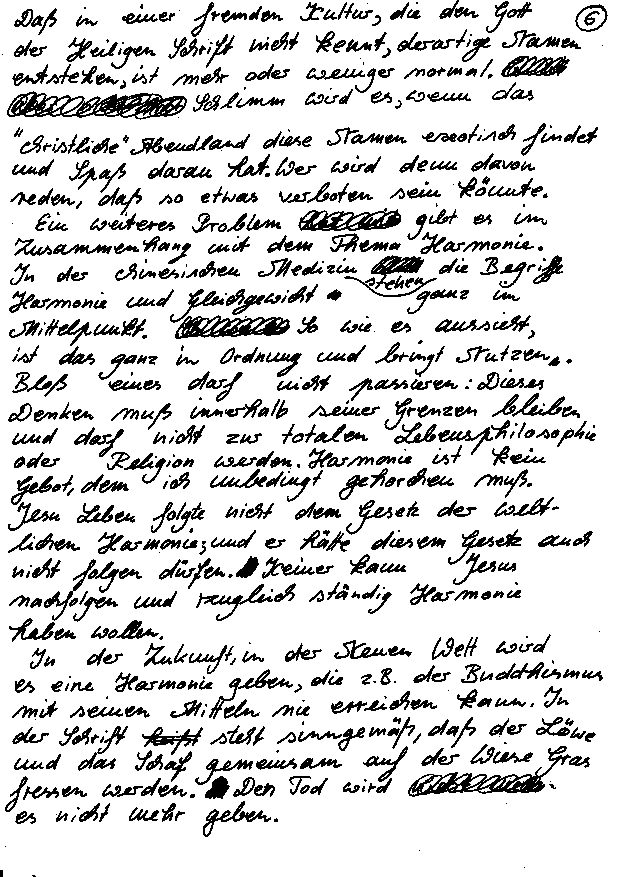 Daß in einer fremden Kultur, die den Gott
6
der Heiligen Schrift nicht kennt, derartige Namen
entstehen, ist mehr oder weniger normal.
Schlimm wird es, wenn das
"christliche" Abendland diese Namen exotisch findet
und Spaß daran hat. Wer wird denn davon
reden, daß so etwas verboten sein könnte.
Ein weiteres Problem gibt es im
Zusammenhang mit dem Thema Harmonie.
In der chinesischen Medizin stehen die Begriffe
Harmonie und Gleichgewicht ganz im
Mittelpunkt. So wie es aussieht,
ist das ganz in Ordnung und bringt Nutzen.
Bloß eines darf nicht passieren: Dieses
Denken muß innerhalb seiner Grenzen bleiben
und darf nicht zur totalen Lebensphilosophie
oder Religion werden. Harmonie ist kein
Gebot, dem ich unbedingt gehorchen muß.
Jesu Leben folgte nicht dem Gesetz der welt-
lichen Harmonie; und er hätte diesem Gesetz auch
nicht folgen dürfen. Keiner kann Jesus
nachfolgen und zugleich ständig Harmonie
haben wollen.
In der Zukunft, in der Neuen Welt wird
es eine Harmonie geben, die z.B. der Buddhismus
mit seinen Mitteln nie erreichen kann. In
der Schrift steht sinngemäß, daß der Löwe
und das Schaf gemeinsam auf der Wiese Gras
fressen werden. Den Tod wird
es nicht mehr geben.